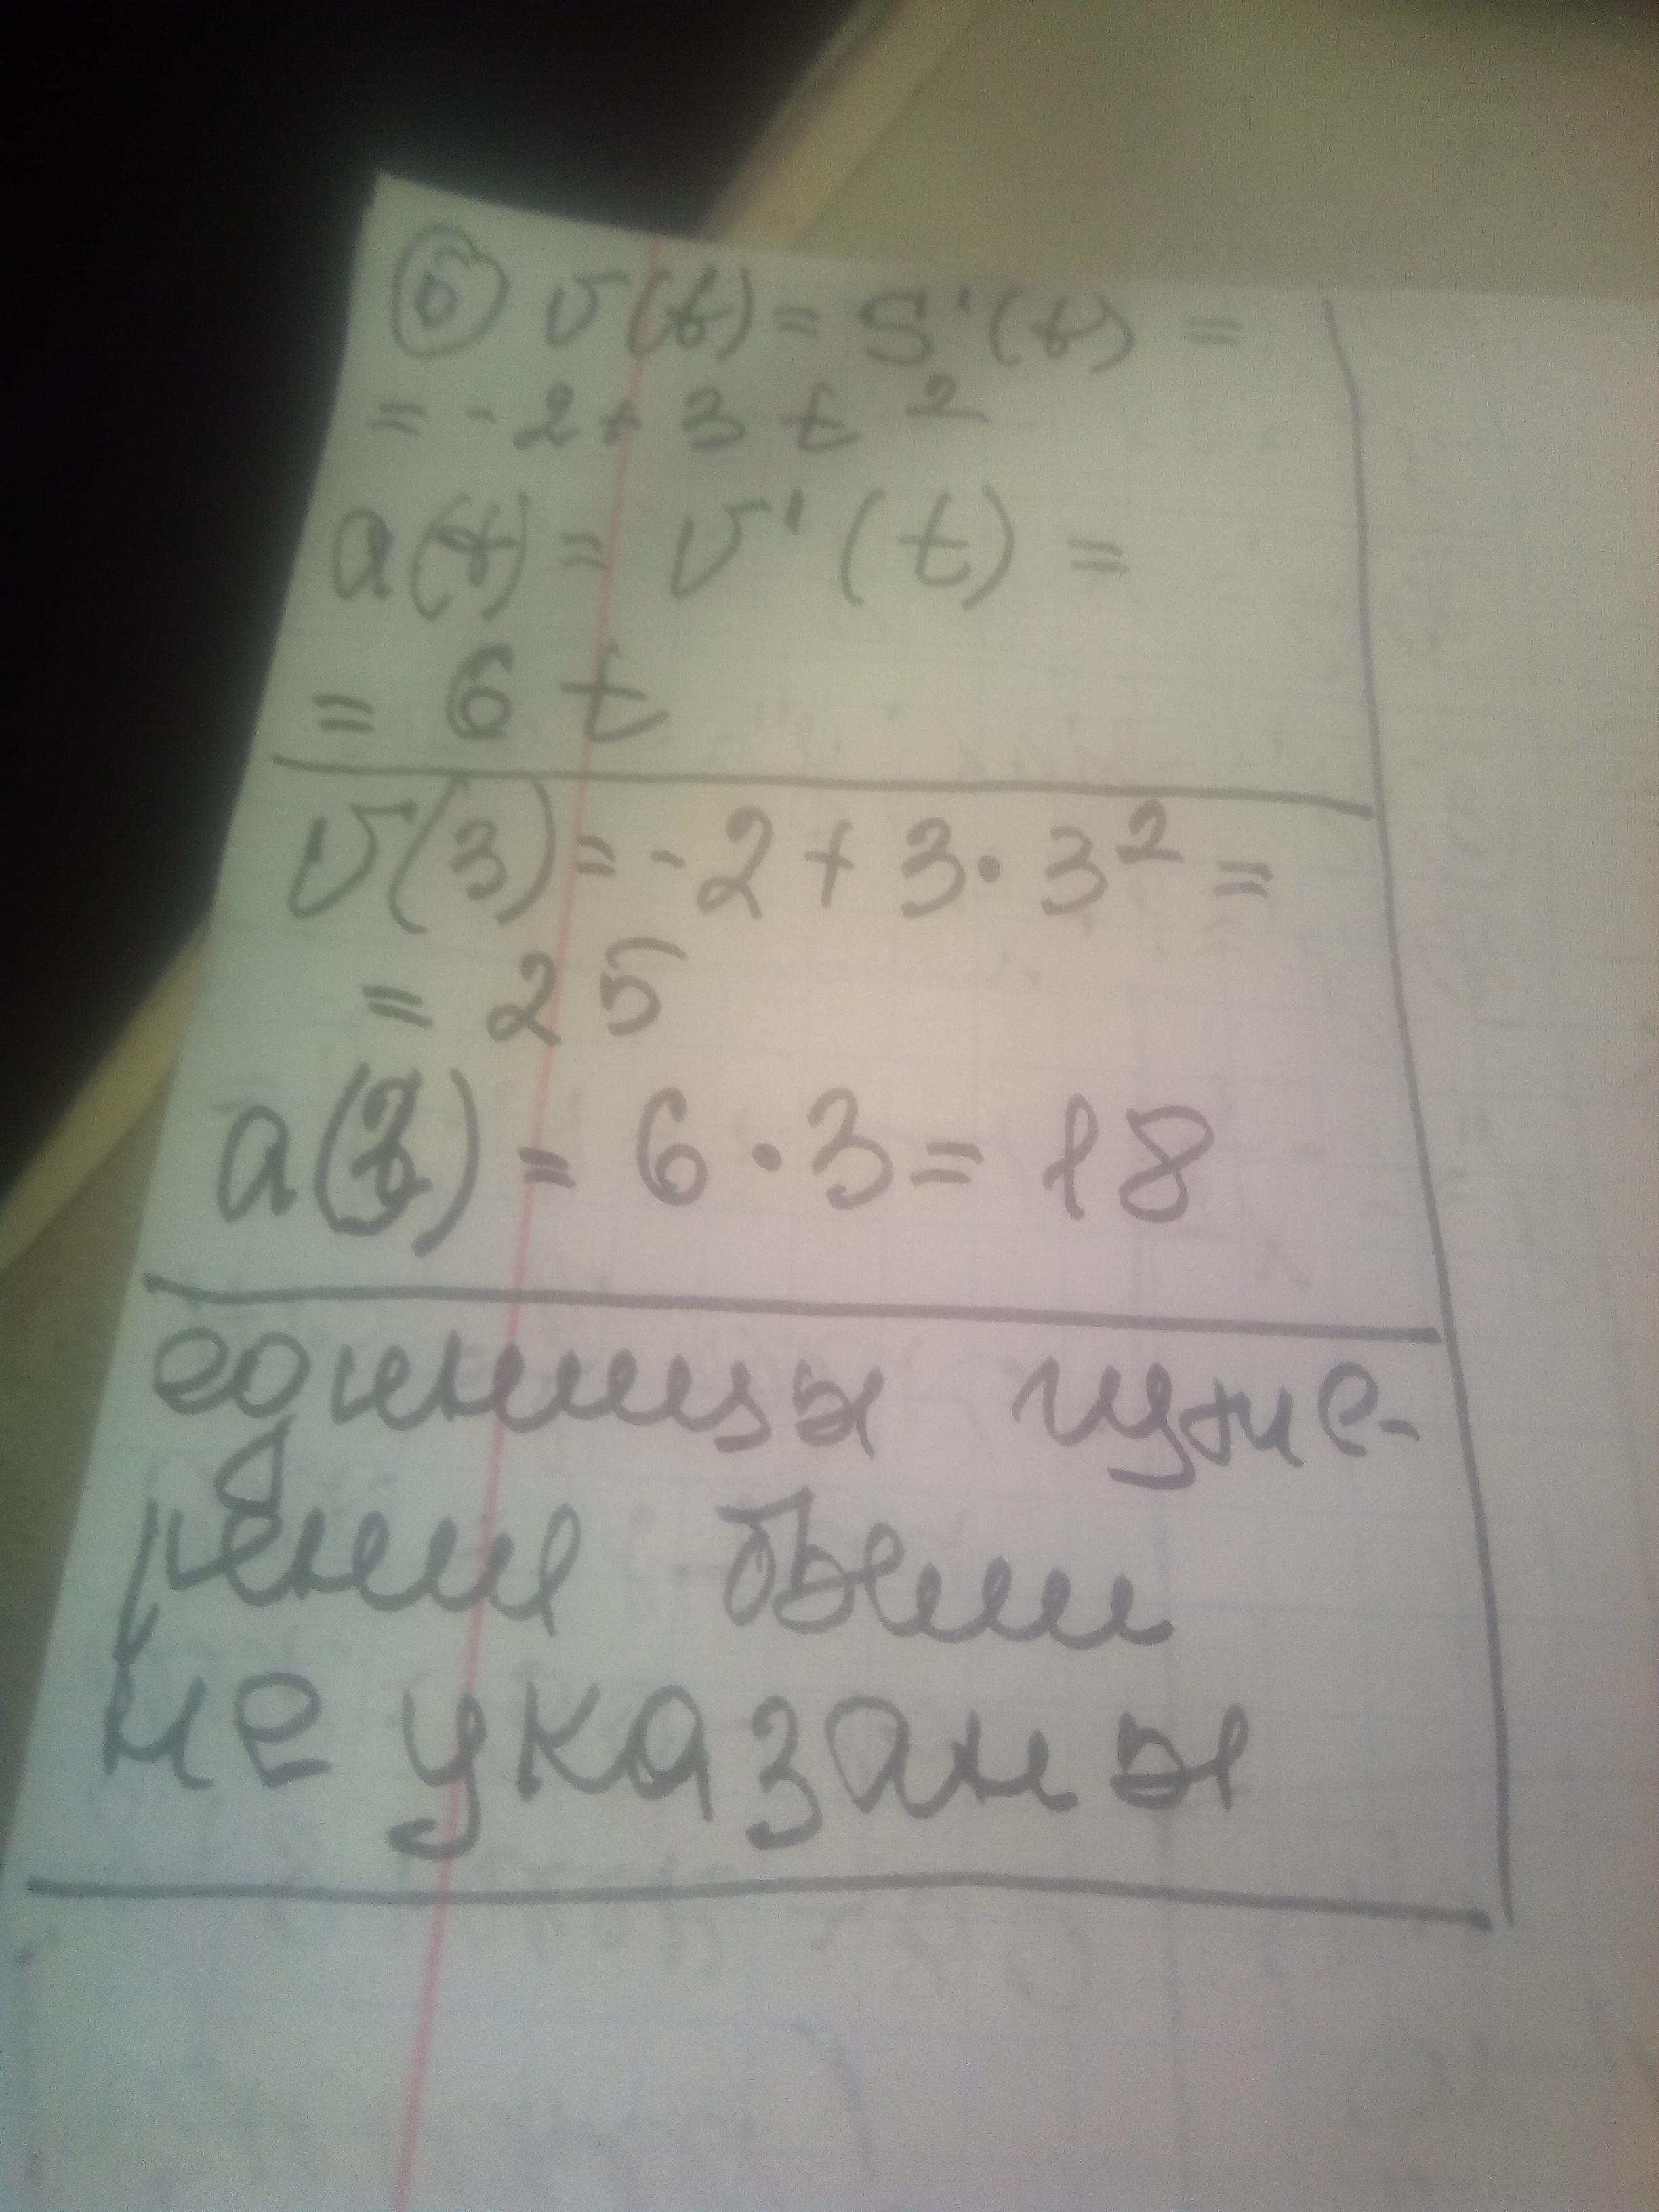 б v(t) = S'(t) =
= -2 + 3t²
a(t) = v'(t) =
= 6t
v(3) = -2 + 3·3² =
= 25
a(3) = 6·3 = 18
единицы изме-
рения были
не указаны